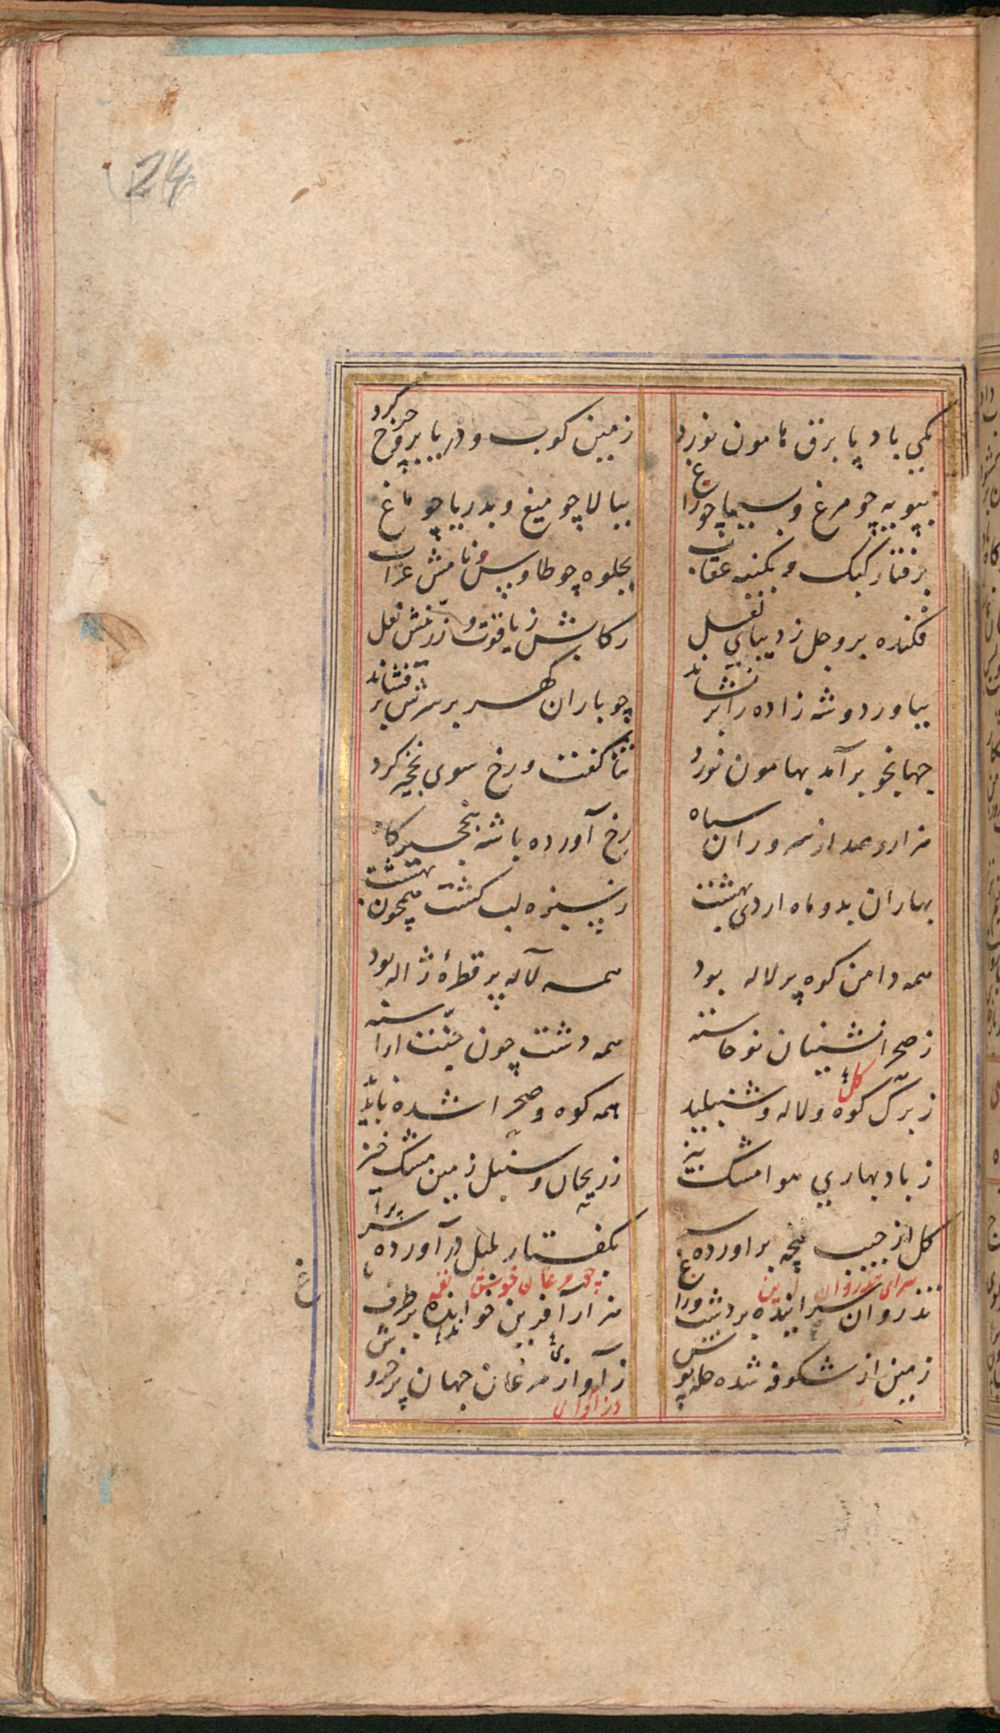 24
یکی باد پا برق هامون نورد
زمین کوب و دریا بر و چرخ گرد
بپویه چو مرغ و بسیما چو راغ
ببالا چو میغ و بدریا چو ماغ
برفتار کبک و بکینه عقاب
بجلوه چو طاوس و نامش غراب
فکنده برو جل ز دیبای لعل
رکابش ز یاقوت و زرینش نعل
بیاورد و شه زاده را بر نشاند
چو باران گهر بر سرش بر فشاند
جهانجو برآمد بهامون نورد
ثنا گفت و رخ سوی نخچیر کرد
هزار و صد از سروران سپاه
رخ آورده با شه بنخچیرگاه
بهاران بد و ماه اردی بهشت
ز سبزه لب کشت همچون بهشت
همه دامن کوه پر لاله بود
همه لاله پر قطرهٔ ژاله بود
ز صحرا نشینان نو خاسته
همه دشت چون جنت اراسته
ز برگ گل کوه و لاله و شنبلید
همه کوه و صحرا شده ناپدید
ز باد بهاری هوا مشک بیز
ز ریحان و سنبل زمین مشک خیز
کل از جیب غنچه براورده سر
بگفتار بلبل در آورده سر
تذروان سراینده بر دشت و راغ
هزار آفرین خوانده بر طرف باغ
سرای تذروان
مرغان خوش نغمه
زمین از شکوفه شده حله پوش
ز آواز مرغان جهان پر خروش
در آوای
غ